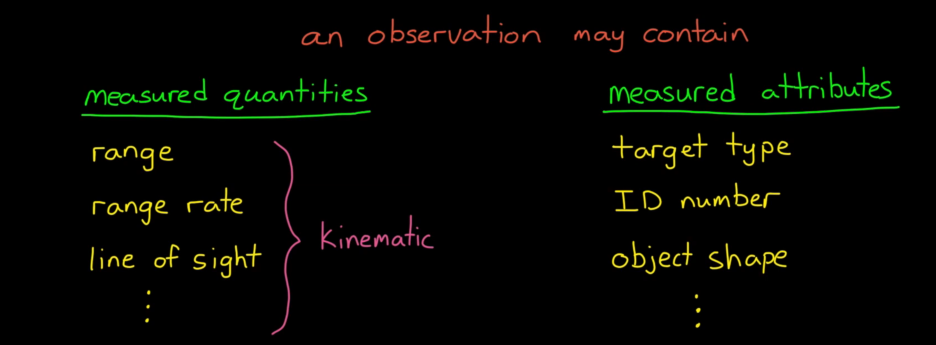 an observation may contain
measured quantities
range
range rate
line of sight
⋮
kinematic
measured attributes
target type
ID number
object shape
⋮